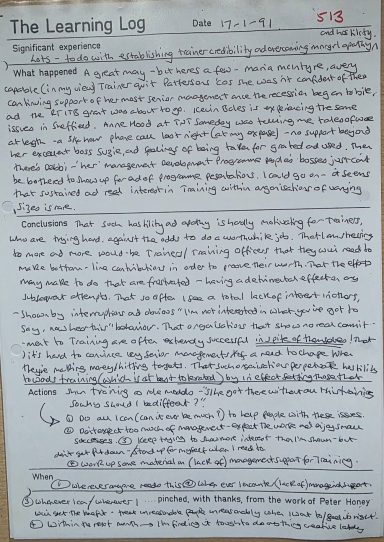 The Learning Log Date 17-1-91 513
Significant experience and hostility.
Lots - to do with establishing trainer credibility and overcoming mngrl apathy
What happened A great many - but here's a few - Maria McIntyre, a very
capable (in my view) Trainer quit Pattersons 'cos she wasn't confident of the
continuing support of her most senior management once the recession began to bite,
and the grant was about to go. Kevin Boles is experiencing the same
issues in Sheffield. Anne Head at TWI Someday was telling me tales of woe
at length - a phone call last night (at my expense) - no support beyond
her excellent boss Suzie, and feelings of being taken for granted and used. Then
there's - 'her' Management Development Programme people's bosses just can't
be bothered to show up for end of programme presentations. I could go on - it seems
that sustained and real interest in Training within organisations of varying
sizes is rare.
Conclusions That such hostility and apathy is hardly motivating for Trainers,
who are trying hard, against the odds to do a worthwhile job. That I am hearing
to more and more would-be Trainers/Training Officers that they will need to
make bottom-line contributions in order to prove their worth. That the efforts
may make to do that are frustrated - having a detrimental effect on any
subsequent attempts. That so often I see a total lack of interest in others,
- shown by interruptions and obvious "I'm not interested in what you've got to
say, now hear this" behaviour. That organisations that show no real commit-
-ment to Training are often extremely successful in spite of themselves that
it's hard to convince very senior management of a need to change when
they're making money/hitting targets. That such organisations perpetuate hostility
towards training (which is at best tolerated) by in effect setting those that
Actions shun Training as role models - "She got there without all this training
so why should I be different?"
① Do all I can (can it ever be much?) to help people with these issues.
② Don't expect too much of management - expect the worse and enjoy small
successes. ③ Keep trying to show more interest than I'm shown - but
don't get put down - stand up for myself when I need to
④ Work up some material on (lack of) management support for Training.
When ① Whenever anyone needs this ② When ever I encounter (lack of) management support.
③ Whenever I can/whenever I .... pinched, with thanks, from the work of Peter Honey
④ Within the next month - I'm finding it tough to do anything creative lately